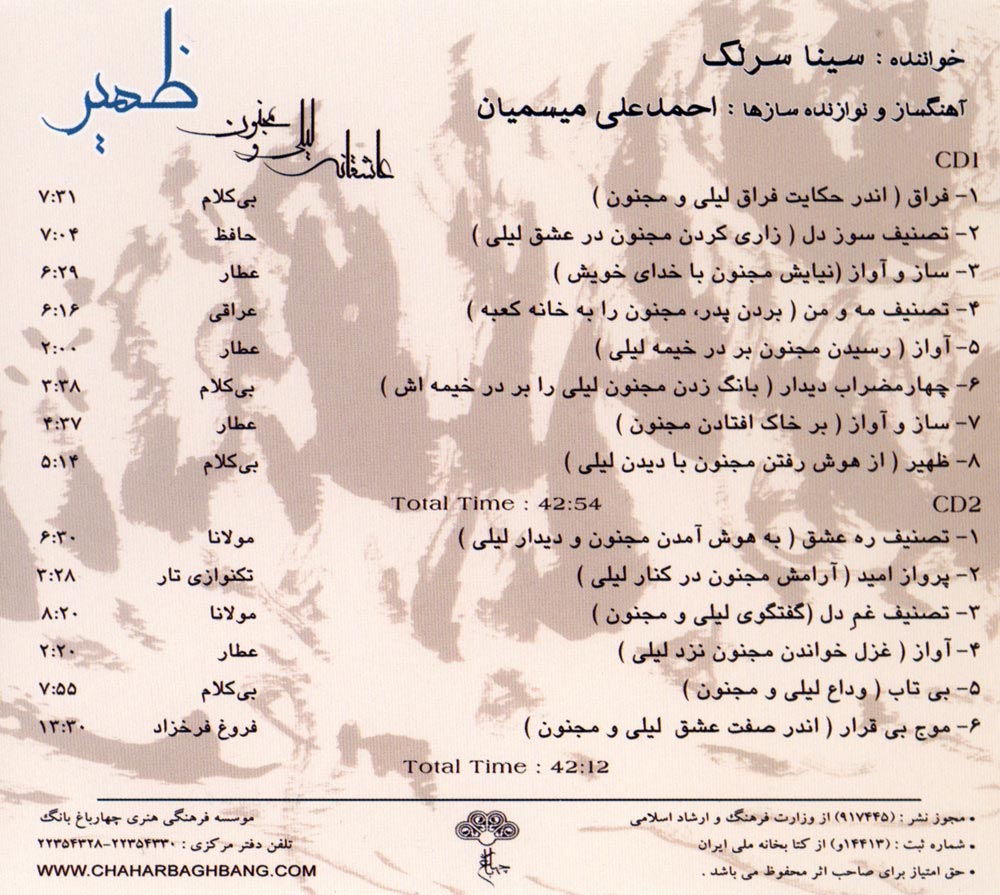 خواننده : سینا سرلک
آهنگساز و نوازنده سازها : احمدعلی میسمیان
ظهیر
عاشقانه لیلی و مجنون
CD1
۱- فراق ( اندر حکایت فراق لیلی و مجنون ) بی‌کلام ۷:۳۱
۲- تصنیف سوز دل ( زاری کردن مجنون در عشق لیلی ) حافظ ۷:۰۴
۳- ساز و آواز (نیایش مجنون با خدای خویش ) عطار ۶:۲۹
۴- تصنیف مه و من ( بردن پدر، مجنون را به خانه کعبه ) عراقی ۶:۱۶
۵- آواز ( رسیدن مجنون بر در خیمه لیلی ) عطار ۲:۰۰
۶- چهارمضراب دیدار ( بانگ زدن مجنون لیلی را بر در خیمه اش ) بی‌کلام ۳:۳۸
۷- ساز و آواز ( بر خاک افتادن مجنون ) عطار ۴:۳۷
۸- ظهیر ( از هوش رفتن مجنون با دیدن لیلی ) بی‌کلام ۵:۱۴
Total Time : 42:54
CD2
۱- تصنیف ره عشق ( به هوش آمدن مجنون و دیدار لیلی ) مولانا ۶:۳۰
۲- پرواز امید ( آرامش مجنون در کنار لیلی ) تکنوازی تار ۳:۲۸
۳- تصنیف غمِ دل (گفتگوی لیلی و مجنون ) مولانا ۸:۲۰
۴- آواز ( غزل خواندن مجنون نزد لیلی ) عطار ۲:۲۰
۵- بی تاب ( وداع لیلی و مجنون ) بی‌کلام ۷:۵۵
۶- موج بی قرار ( اندر صفت عشق لیلی و مجنون ) فروغ فرخزاد ۱۳:۳۰
Total Time : 42:12
• مجوز نشر : (۹۱۷۴۴۵) از وزارت فرهنگ و ارشاد اسلامی
• شماره ثبت : (۱۴۴۱۳و) از کتا بخانه ملی ایران
• حق امتیاز برای صاحب اثر محفوظ می باشد .
موسسه فرهنگی هنری چهارباغ بانگ
تلفن دفتر مرکزی : ۲۲۳۵۴۳۳۰-۲۲۳۵۴۳۲۸
WWW.CHAHARBAGHBANG.COM